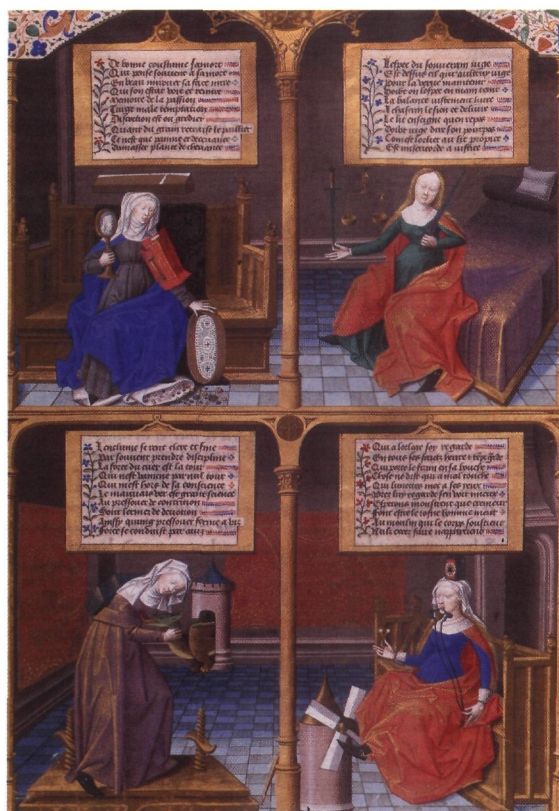 De bonne constume lamort
Qui pense souvent a sa mort
En beau mirouer sa face mire
Qui son estat voit et remire
Memoire de la passion
Targe male temptation
Discretion est ou grenier
Quant du grain retraist le paillier
Ce nest que paine et decevance
Damasser plante de chevance
Lespee du souverain iuge
Est dessus cil qui aultruy iuge
Pour la verite maintenir
Doibt on lespee en main tenir
La balance iustement livre
A chascun le sien et delivre
Le lit enseigne quen repos
Doibt iuge dire son pourpos
Comme loreiller au lit propice
Est misericorde a iustice
Lenclume se rent clere et fine
Par souvent prendre discipline
La force du cuer est la tour
Qui nest vaincue par nul tour
Qui nest hors de sa conscience
Le mauvais ver est grant science
Au pressouer de contriction
Sont lermes de devotion
Aussy quung pressouer ferme a vis
Force se conduist par avis
Qui a lorloge soy regarde
En tous ses faicts heure et temps garde
Qui porte le frain en sa bouche
Chose ne dist qui a mal touche
Qui lunettes met a ses yeux
Prez luy regarde sen voit mieux
Esperons monstrent que cremeur
Font estre le josne homme meur
Au moulin qui le corps soustient
Nuls exces faire nappartient